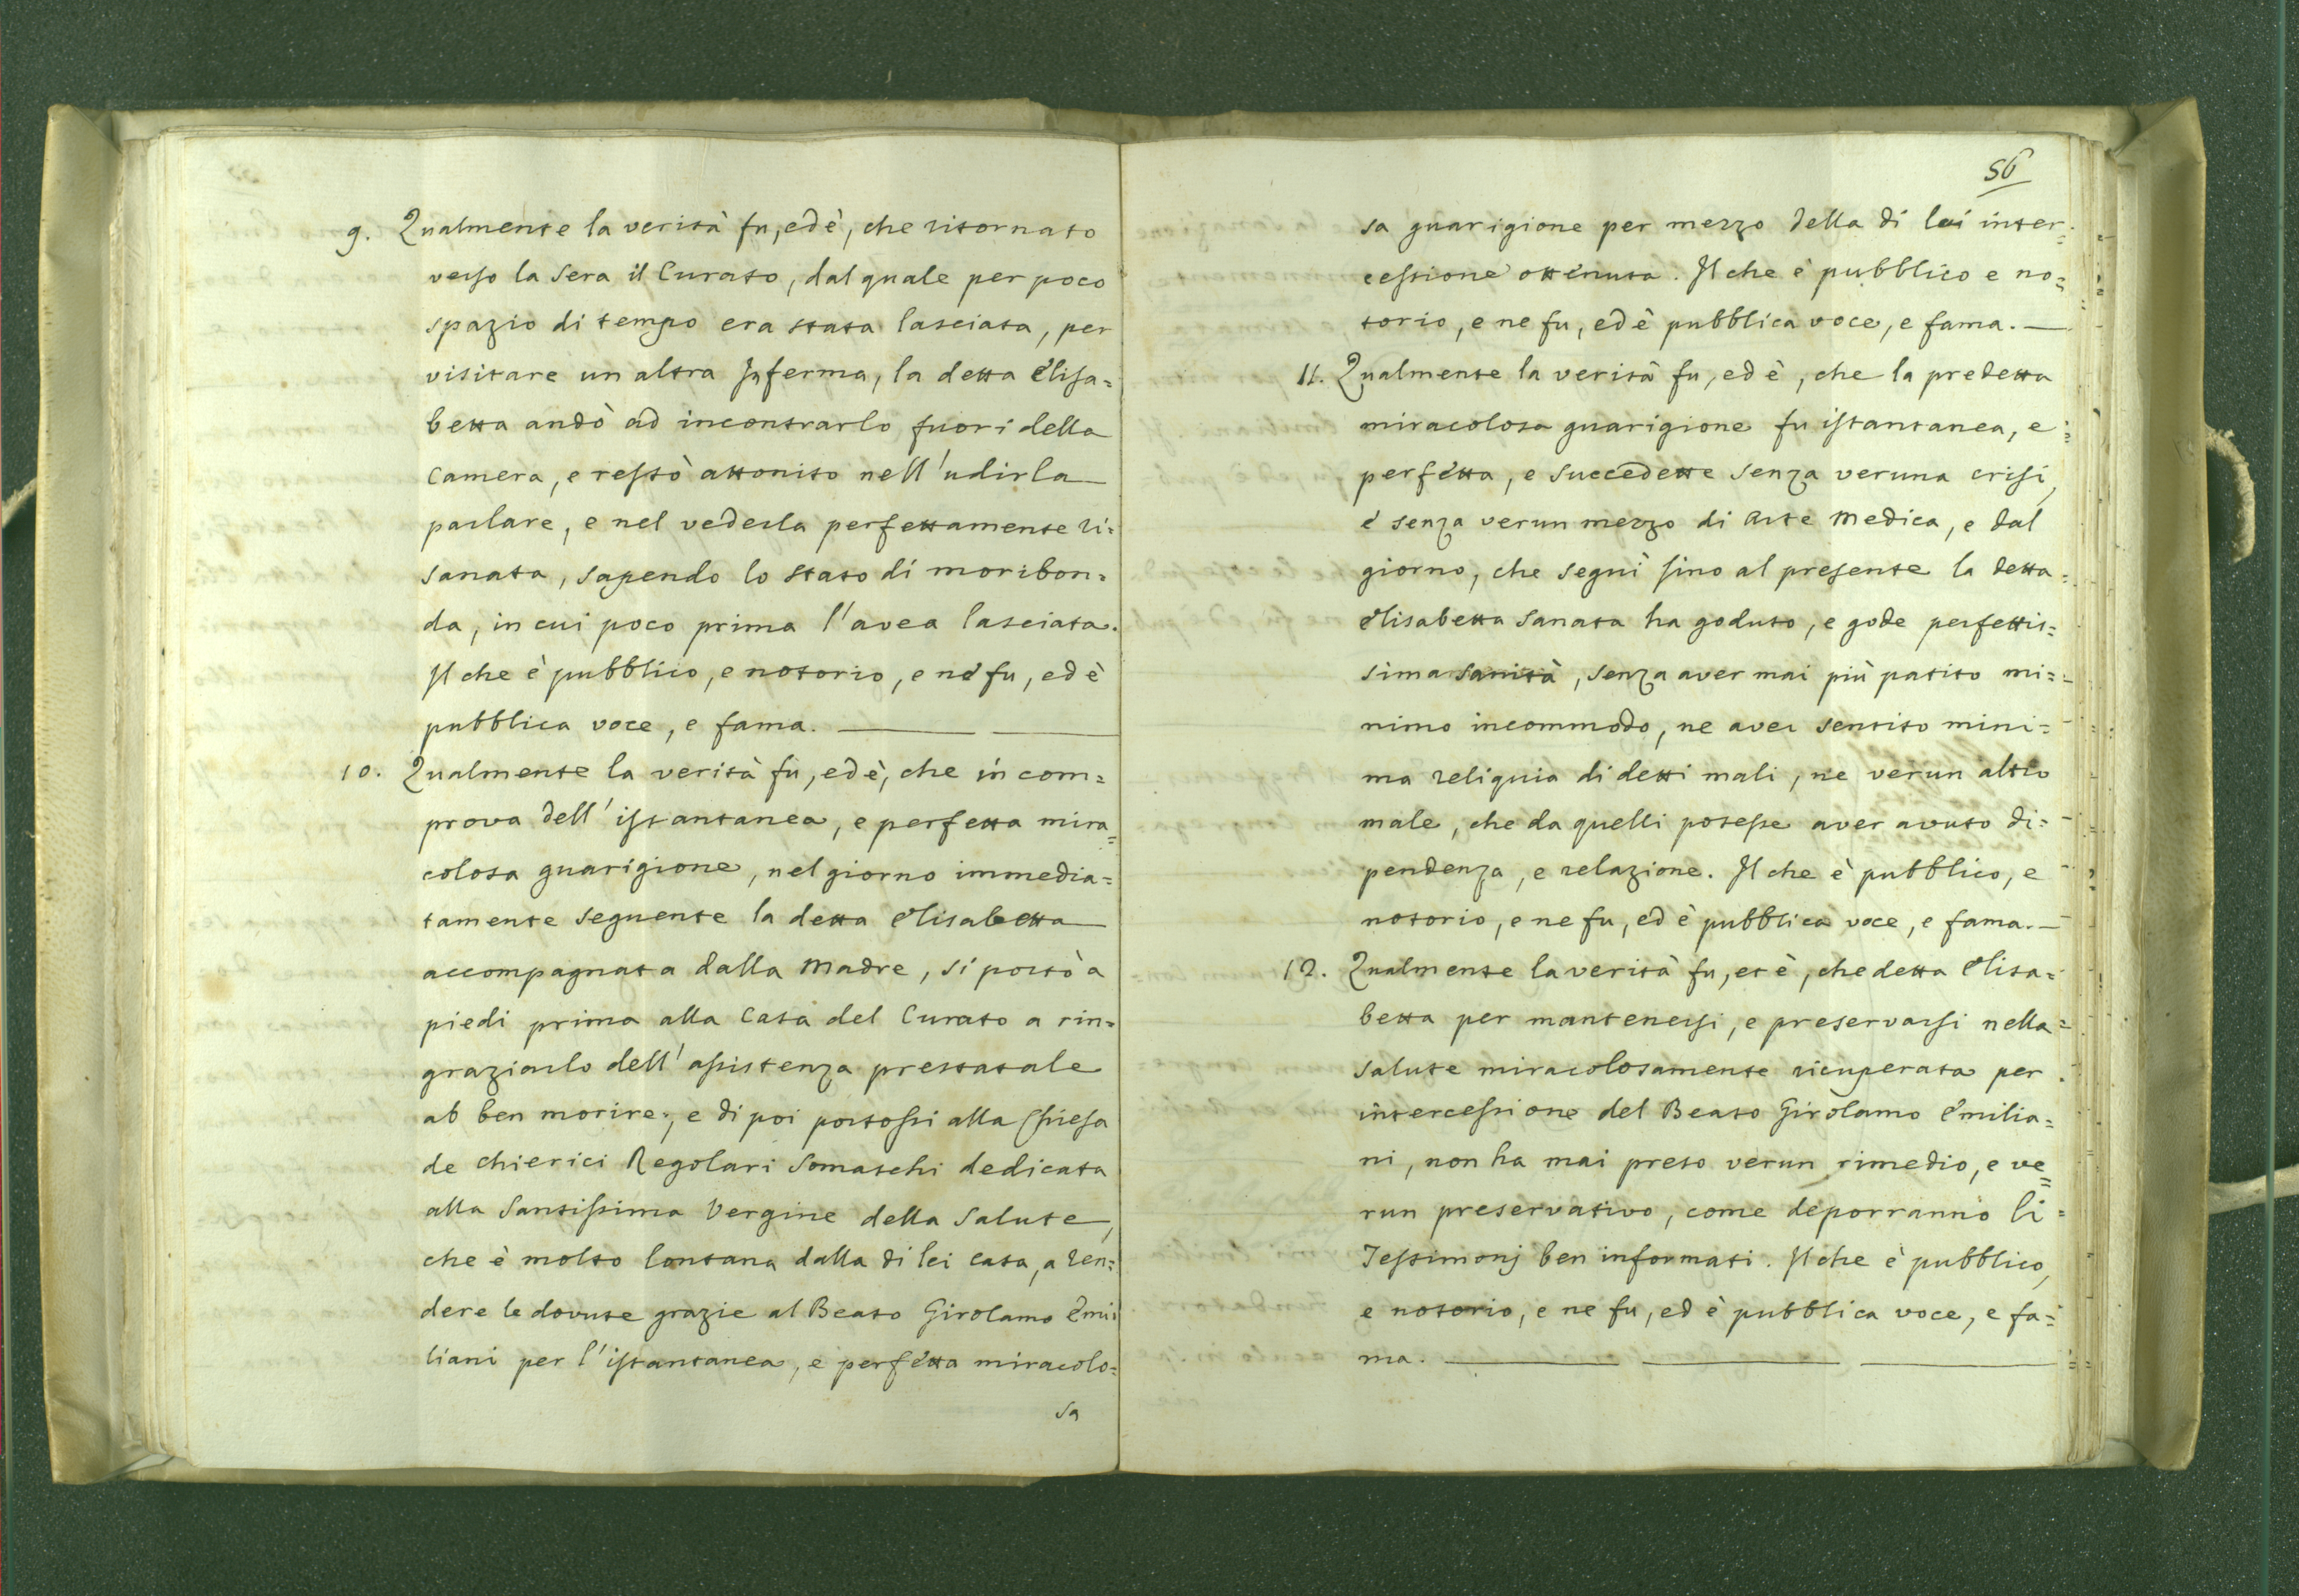 9. Qualmente la verità fu, ed è, che ritornato
verso la Sera il Curato, dal quale per poco
spazio di tempo era stata lasciata, per
visitare un altra Inferma, la detta Elisa=
betta andò ad incontrarlo fuori della
Camera, e restò attonito nell'udirla
parlare, e nel vederla perfettamente ri=
sanata, sapendo lo stato di moribon=
da, in cui poco prima l'avea lasciata.
Il che è pubblico, e notorio, e ne fu, ed è
pubblica voce, e fama.
10. Qualmente la verità fu, ed è, che in com=
prova dell'istantanea, e perfetta mira=
colosa guarigione, nel giorno immedia=
tamente seguente la detta Elisabetta
accompagnata dalla Madre, si portò a
piedi prima alla Casa del Curato a rin=
graziarlo dell'assistenza prestatale
ab ben morire; e di poi portossi alla Chiesa
de Chierici Regolari Somaschi dedicata
alla Santissima Vergine della Salute,
che è molto lontana dalla di lei casa, a ren=
dere le dovute grazie al Beato Girolamo Emi=
liani per l'istantanea, e perfetta miracolo=
sa
56
sa guarigione per mezzo della di lui inter=
cessione ottenuta. Il che è pubblico e no=
torio, e ne fu, ed è pubblica voce, e fama.
11. Qualmente la verità fu, ed è, che la predetta
miracolosa guarigione fu istantanea, e
perfetta, e succedette senza veruna crisi,
e senza verun mezzo di Arte Medica, e dal
giorno, che seguì sino al presente la detta
Elisabetta sanata ha goduto, e gode perfettis=
sima sanità, senza aver mai più patito mi=
nimo incommodo, ne aver sentito mini=
ma reliquia di detti mali, ne verun altro
male, che da quelli potesse aver avuto di=
pendenza, e relazione. Il che è pubblico, e
notorio, e ne fu, ed è pubblica voce, e fama.
12. Qualmente la verità fu, et è, che detta Elisa=
betta per mantenersi, e preservarsi nella
salute miracolosamente ricuperata per
intercessione del Beato Girolamo Emilia=
ni, non ha mai preso verun rimedio, e ve=
run preservativo, come deporranno li
Testimonj ben informati. Il che è pubblico,
e notorio, e ne fu, ed è pubblica voce, e fa=
ma.